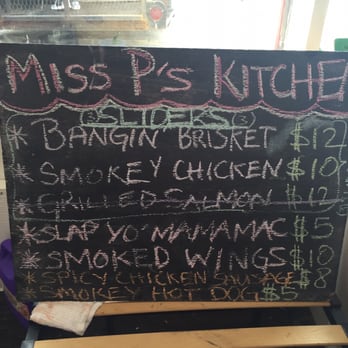 MISS P'S KITCHE
3 SLIDERS 3
* BANGIN BRISKET $12
* SMOKEY CHICKEN $10
* GRILLED SALMON $12
* SLAP YO' MAMAMAC $5
* SMOKED WINGS $10
* SPICY CHICKEN SAUSAGE $8
SMOKEY HOT DOG $5